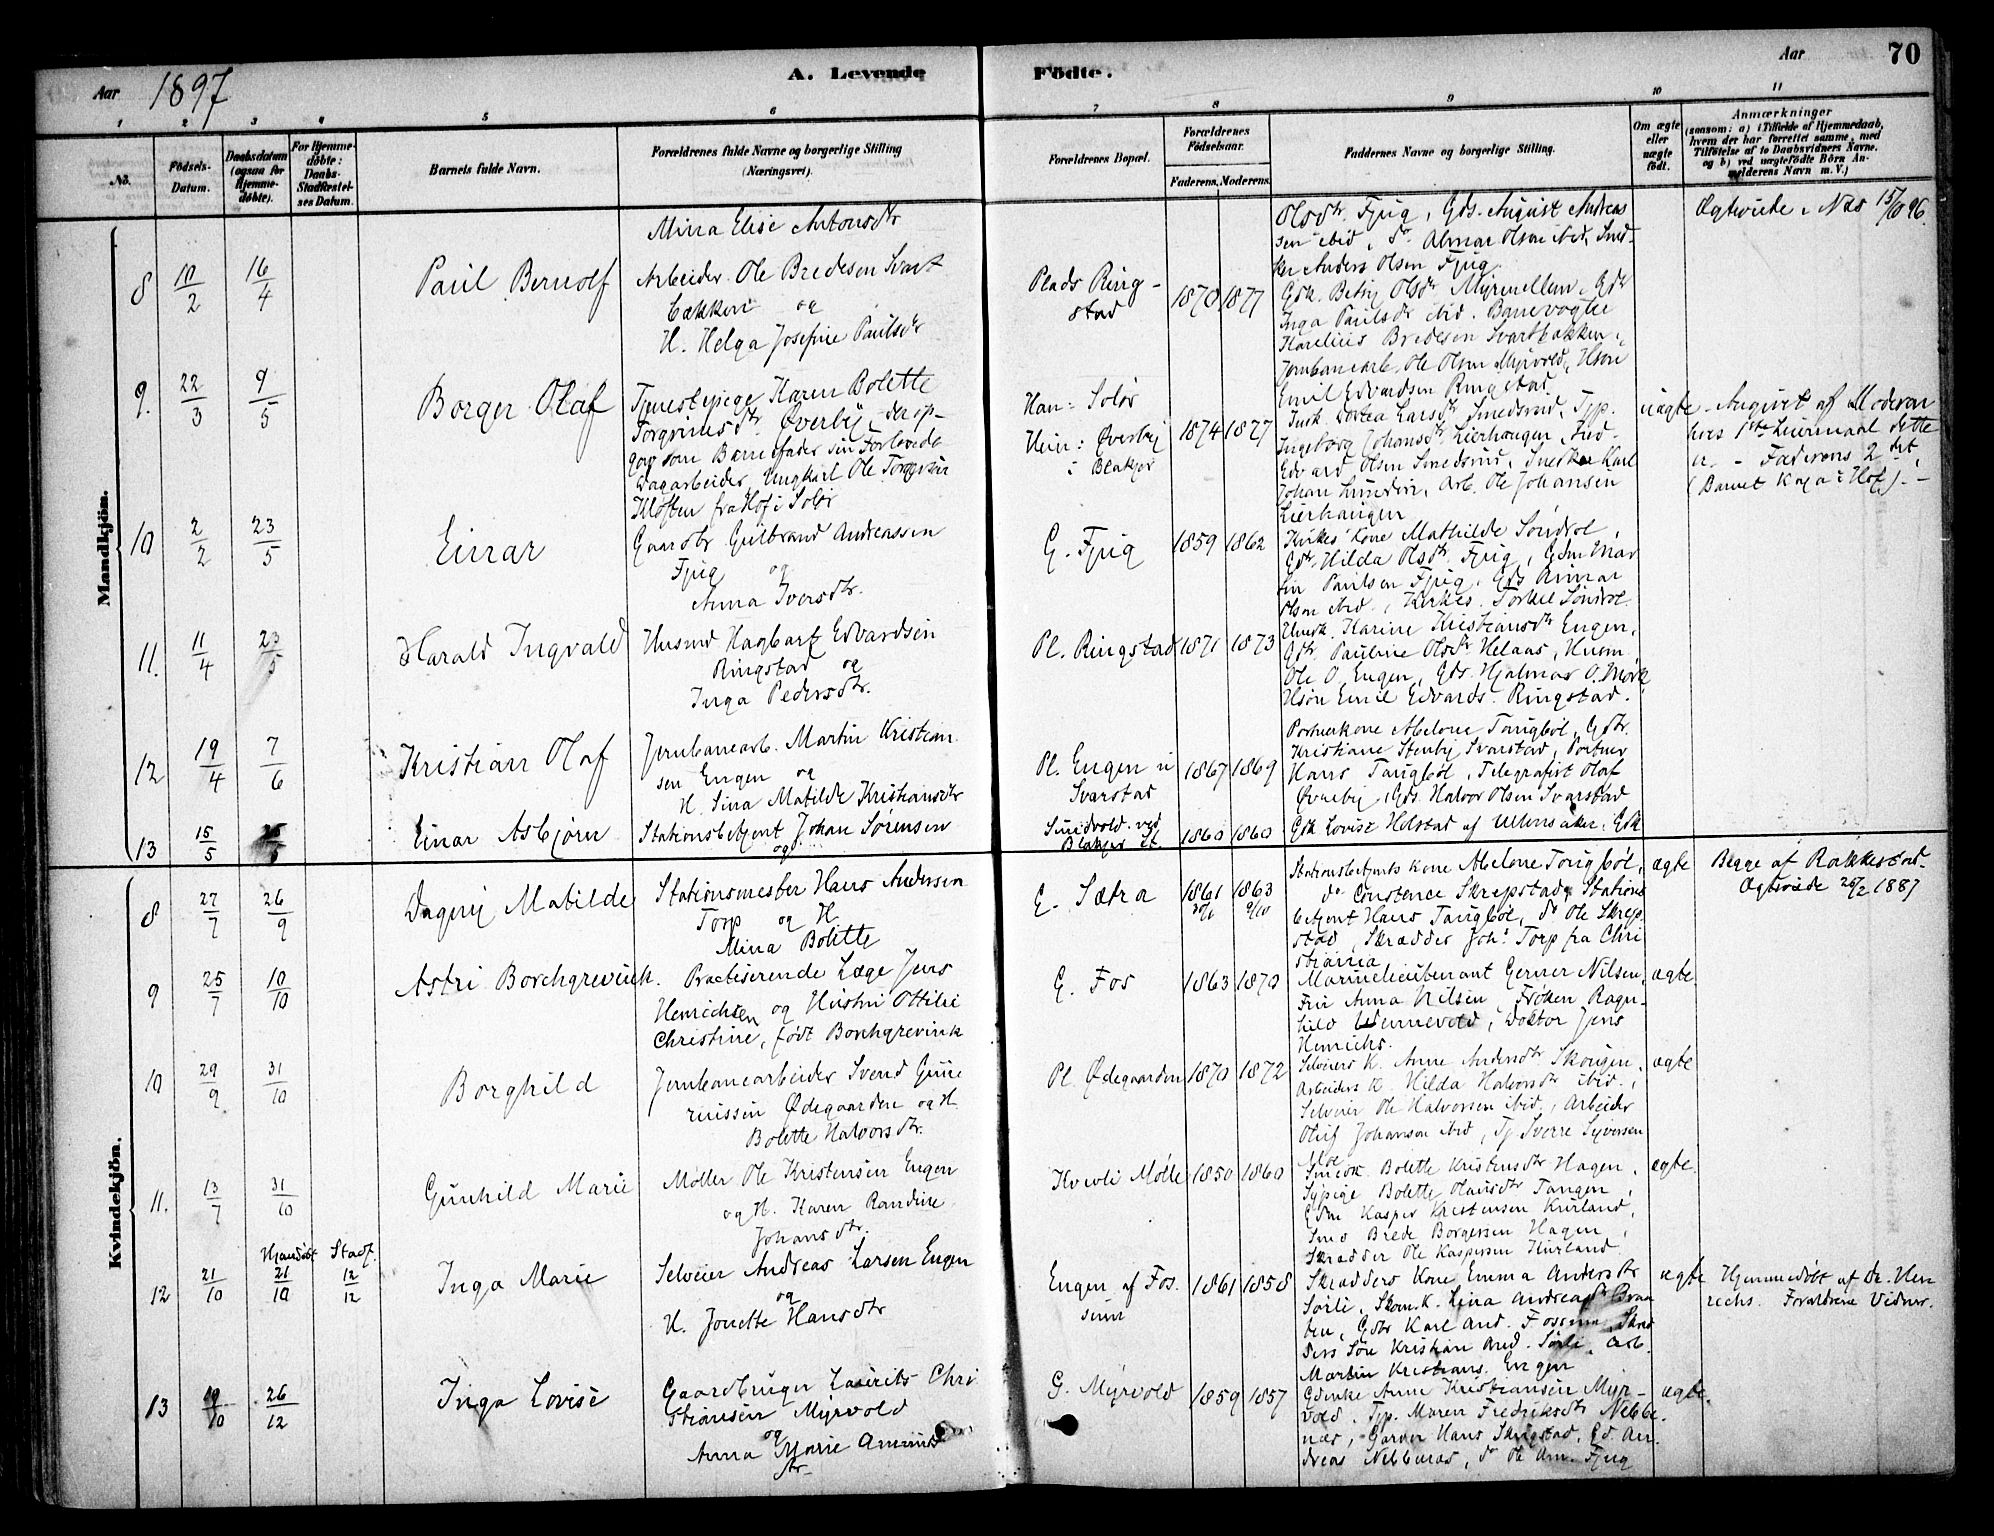 Aar 1897
A. Levende
Födte.
Aar
70
1 2 3 4 5 6 7 8 9 10 11
No.
Födsels-Datum.
Daabsdatum (ogsaa for Hjemme-döbte).
For Hjemme-döbte: Daabs-Stadfæstel-ses Datum.
Barnets fulde Navn.
Forældrenes fulde Navne og borgerlige Stilling (Næringsvei).
Forældrenes Bopæl.
Forældrenes Födselsaar.
Faderens. Moderens.
Faddernes Navne og borgerlige Stilling.
Om ægte eller uægte födt.
Anmærkninger
(saasom: a) i Tilfælde af Hjemmedaab, hvem der har forrettet samme, med Tilföielse af to Daabsvidners Navne. og b) ved uægtefödte Börn Anmelderens Navn m. V.)
Mandkjön.
Mina Elise Antonsdtr
Olsdtr. Fjug, Gds. August Andreas
sen ibid, do Almar Olsen ibid, Sned-
ker Anders Olsen Fjug
Ægteviede i Næs 15/10 96.
8 10/2 16/4 Paul Bernolf
Arbeider Ole Bredesen Svart
bækken og
H. Helga Josefine Paulsdtr
Plads Ring-
stad
1870 1877
Gdk. Betsy Olsdtr Myrmellem, Gdtr
Inga Paulsdtr ibid. Banevogte
Karelius Bredesen Svartbækken,
Jernbanearb. Ole Olsen Myrvold, Hsøn
Emil Edvardsen Ringstad
9. 22/3 9/5 Borger Olaf
Tjenestepige Karen Bolette
Torgrimsdtr. Øverby, der op-
gav som Barnefader sin Forlovede
Dagarbeider, Ungkarl Ole
Kloften fra Hof i Solør
Han: Solør
Hun: Øverby
i Blakjer
1874 1877
Ingeborg Johansdtr Lierhaugen,
Edvard Olsen Smedsrud, Snedker Karl
Johan Lundin, Arb. Ole Johansen
Lierhaugen
uægte
Angivet af Moderen
hvis 1ste Leiermaal dette
er - Faderens 2det,
(Barnet Kaja i Hof). -
10 2/2 23/5 Einar
Gaardbr Gulbrand Andreassen
Fjug og
Anna Iversdtr.
G. Fjug
1859 1862
Kirkes. Kone Mathilde Søndrol,
Gdtr. Hilda Olsdtr. Fjug, Gdm Mar
tin Paulsen Fjug, Gds Almar
Olsen ibid., Kirkes. Torkel Søndrol.
11. 11/4 23/5 Harald Ingvald
Husmd Hagbart Edvardsen
Ringstad og
Inga Pedersdtr.
Pl. Ringstad
1871 1873
Husmk. Karine Kristiansdtr Engen,
Gdtr. Pauline Olsdtr Helaas, Husm
Ole O. Engen, Gds. Hjalmar O. Mørk
Hsøn Emil Edvards. Ringstad.
12 19/4 7/6 Kristian Olaf
Jernbanearb. Martin Kristian
sen Engen og
H. Lina Matilde Kristiansdtr
Pl. Engen u
Svarstad
1867 1869
Portnerkone Abelone Taugbøl, Gdtr.
Kristiane Stenby Svarstad, Portner
Hans Taugbøl, Telegrafist Olaf
Øverby, Gds. Halvor Olsen Svarstad
13 15/5 Einar Asbjørn
Stationsbetjent Johan Sørensen
og
ved
Blakjer St.
1860 1860
Gdk Lovise Helstad af Ullensaker, Gdk
Kvindekjön.
8 27/7 26/9 Dagny Matilde
Stationsmester Hans Andersen
Torp og H.
Mina Bolette
E. Sætra
1861 1863
Stationsbetjents kone Abelone Taugbøl,
do Constence Skrepstad, Stations
betjent Hans Taugbøl, do Ole Skrep
stad, Skrædder Johs. Torp fra Chri
stiania
ægte
Begge af Rakkestad.
Ægteviede 26/2 1887
9 25/7 10/10 Astri Borchgrevink.
Practiserende Læge Jens
Henrichsen og Hustru Ottilie
Christine, født Borchgrevink
G. Fos
1863 1870
Marinelieutenant Gerner Nilsen,
Fru Anna Nilsen, Frøken Ragn-
hild Wennevold, Doktor Jens
Henrichs.
ægte
10 29/9 31/10 Borghild
Jernbanearbeider Svend Gune
riussen Ødegaarden og H.
Bolette Halvorsdtr.
Pl. Ødegaarden
1870 1872
Selveiers K. Anne Andersdtr Skougen,
Arbeiders K. Hilda Halvorsdtr ibid,
Selveier Ole Halvorsen ibid, Arbeider
Oluf Johansen ibid, Tj Sverre Syversen
Moe
ægte
11. 13/7 31/10 Gunhild Marie
Møller Ole Kristensen Engen
og H. Karen Randine
Johansdtr.
Kvevli Mølle
1850 1860
Smedk. Bolette Kristensdtr Hagen,
Sypige Bolette Olausdtr Tangen,
Gdm Kasper Kristensen Hurland,
Smed Brede Borgersen Hagen,
Skrædder Ole Kaspersen Hurland
ægte.
Hjemdøbt Stadf.
12 21/10 21/10 12/12 Inga Marie
Selveier Andreas Larsen Engen
og
H. Jonette Hansdtr
Engen af Fos.
sum
1861 1858
Skrædders Kone Emma Andersdtr
Sørli, Skom.K. Lina Andreasdtr Braa
ten, Gdbr Karl And. Fossum, Skræd
ders Søn Kristian And. Sørli, Arb.
Martin Kristians. Engen
ægte
Hjemmedøbt af Dr. Hen
richs. Forældrene Vidner.
13 /10 26/12 Inga Lovise
Gaardbruger Laurits Chri
stiansen Myrvold
og
Anna Marie Amunds
dtr
G. Myrvold
1859 1857
Gdenke Anne Kristiansen Myr-
vold, Tjp. Maren Fredriksdtr Nebbe-
næs, Garver Hans Skrepstad, Gd. An-
dreas Nebbenæs, do Ole Am. Fjug
ægte.